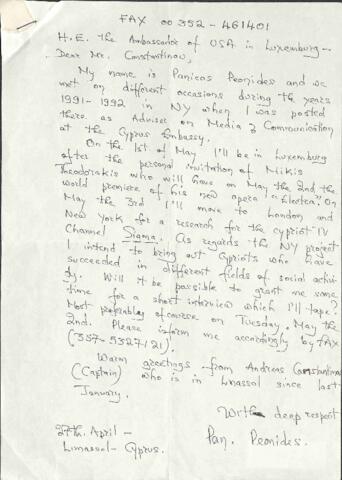 FAX 00352-461401
H.E. The Ambassador of USA in Luxemburg-
Dear Mr. Constantinou,
My name is Panicos Peonides and we
met on different occasions during the years
1991-1992 in NY when I was posted
there as Adviser on Media & Communication
at the Cyprus Embassy.
On the 1st of May I'll be in Luxemburg
after the personal invitation of Mikis
Theodorakis who will have on May the 2nd the
world premiere of his new opera "Electra". On
May the 3rd I'll move to London and
New York for a research for the cypriot TV
Channel Sigma. As regards the NY project
I intend to bring out Cypriots who have
succeeded in different fields of social activi-
ty. Will it be possible to grant me some
time for a short interview which I'll tape?
Most probably of course on Tuesday, May the
2nd. Please inform me accordingly by FAX
(357-5327121).
Warm greetings from Andreas Constantinou
(Captain) who is in Limassol since last
January.
With deep respect
27th April-
Limassol-Cyprus.
Pan. Peonides.